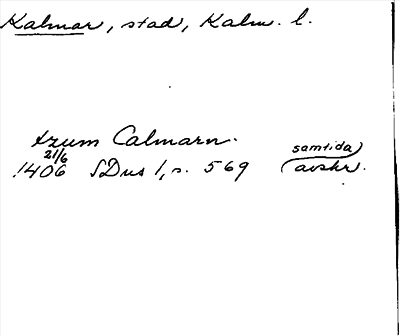 Kalmar, stad, Kalm. l.
tzum Calmarn.
21/6
1406 SDns 1, s. 569 (samtida) avskr.